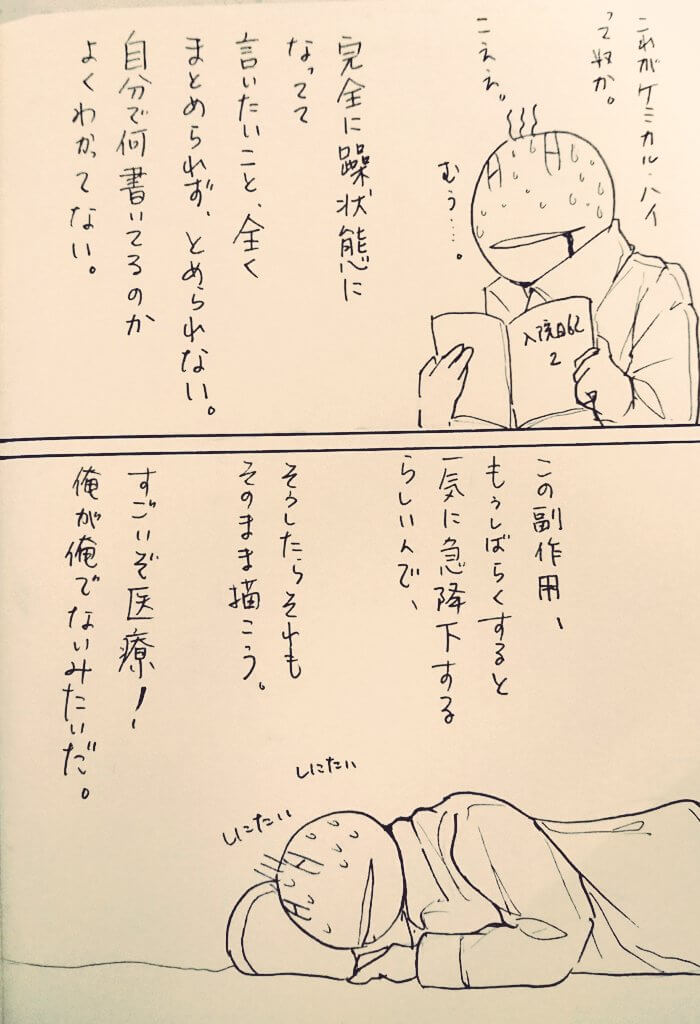 これがケミカル・ハイ
って奴か。
こええ。
むう…。
入院日記
2
完全に躁状態に
なってて
言いたいこと、全く
まとめられず、とめられない。
自分で何書いてるのか
よくわかってない。
この副作用、
もうしばらくすると
一気に急降下する
らしいんで、
そうしたらそれも
そのまま描こう。
すごいぞ医療!
俺が俺でないみたいだ。
しにたい
しにたい